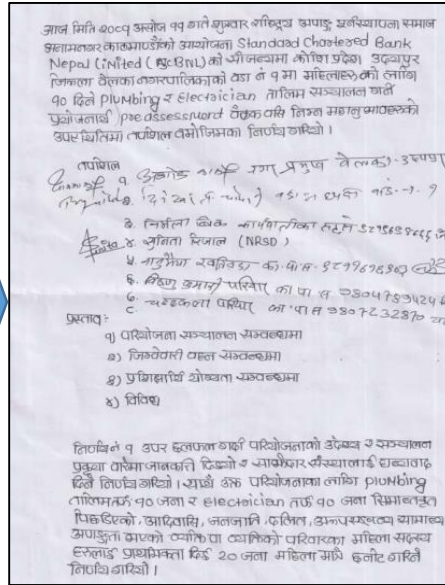 आज मिति २०८१ असोज ११ गते शुक्रबार राष्ट्रिय अपाङ्ग पुर्नस्थापना समाज
अनामनगर काठमाण्डौको आयोजना Standard Chartered Bank
Nepal Limited (SCBNL) को सौजन्यमा कोशी प्रदेश उदयपुर
जिल्ला वेलका नगरपालिकाको वडा नं ९ मा महिलाहरुको लागि
१० दिने Plumbing र Electrician तालिम सञ्चालन गर्न
प्रयोजनार्थ pre assessment बैठक बसि निम्न महानुभावहरुको
उपस्थितिमा तपशिल बमोजिमको निर्णय गरियो ।
तपशिल
१. नगर प्रमुख वेलका उदयपुर
२.
३. निर्मला विक कार्यपालिका सदस्य
४. सुनिता रिजाल (NRSD)
५. का.पा.स.
६. विष्णु कुमारी परियार का.पा.स
७. चन्द्रकला परियार का.पा.स 9807232870
८.
प्रस्तावः
१) परियोजना सञ्चालन सम्बन्धमा
२) जिम्मेवारी वहन सम्बन्धमा
३) प्रशिक्षार्थी योग्यता सम्बन्धमा
४) विविध
निर्णय नं १ उपर छलफल गर्दा परियोजनाको उदेश्य र सञ्चालन
प्रकृया बारेमा जानकारी दिइयो र साझेदार संस्थालाई धन्यवाद
दिने निर्णय गरियो । साथै उक्त परियोजनाका लागि plumbing
तालिमतर्फ १० जना र electrician तर्फ १० जना सिमान्तकृत
पिछडिएको, आदिवासि, जनजाति, दलित, अल्पसंख्यक सामान्य
अपाङ्गता भएको व्यक्ति वा व्यक्तिको परिवारका महिला सदस्य
हरुलाई प्राथमिकता दिई 20 जना महिला मात्रै छनोट गरिने
निर्णय गरियो ।